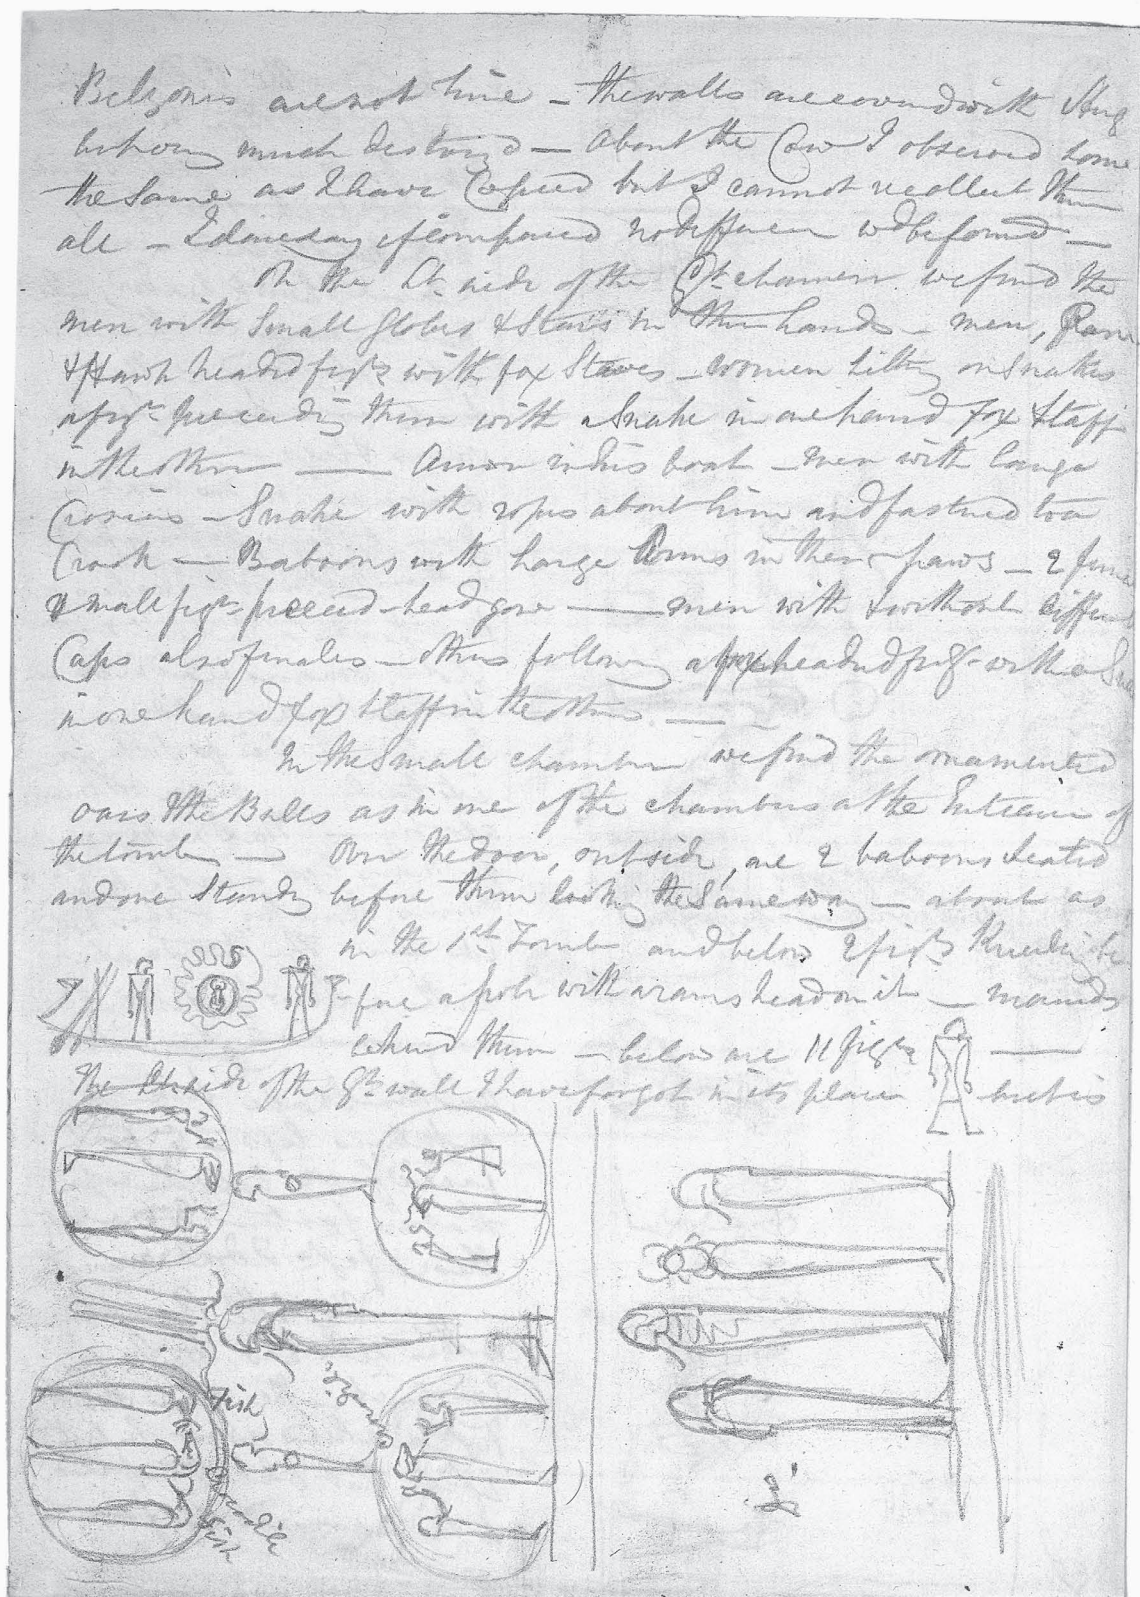 Belzoni's are not here – the walls are covered with
being much destroyed — About the Cow I observed some
the same as I have Copied but I cannot recollect them
all – I daresay if compared no differen wd be found —
On the Lt. side of the Gt. chamber we find the
men with small globes & Staves in their hands – men, Ram
& Hawk headed figs with fox Staves – women sitting on Snakes
a fig. preceeding them with a Snake in one hand fox Staff
in the other — Amon in his boat – men with large
Crosiers – Snake with ropes about him and fastned to a
Crook — Baboons with large in their paws – 2
small figs. preceed – head gone — men with & without differen
Caps also females – others following a fox headed fig. with a
in one hand fox staff in the other —
In the Small chamber we find the ornamented
oars & the Bulls as in one of the chambers at the Entrance of
the tomb — Over the door, outside, are 2 baboons seated
and one Standg before them looking the Same way – about as
in the 1st Tomb and below 2 figs. Kneeling be
fore a pole with a rams head on it –
behind them – below are 11 figs —
The Lt side of the Gt. wall I have forgot in its place but is
Fish
Fish
2